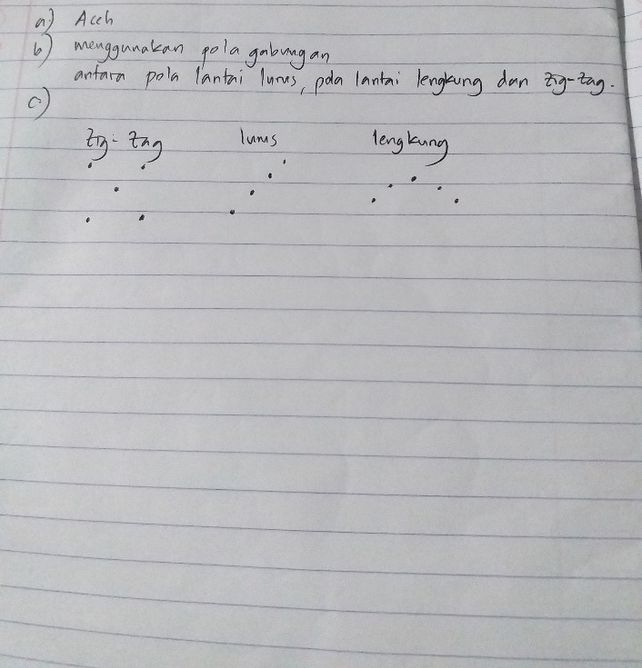 a) Aceh
b) menggunakan pola gabungan
antara pola lantai lurus, pola lantai lengkung dan zig-zag.
c)
zig-zag lurus lengkung